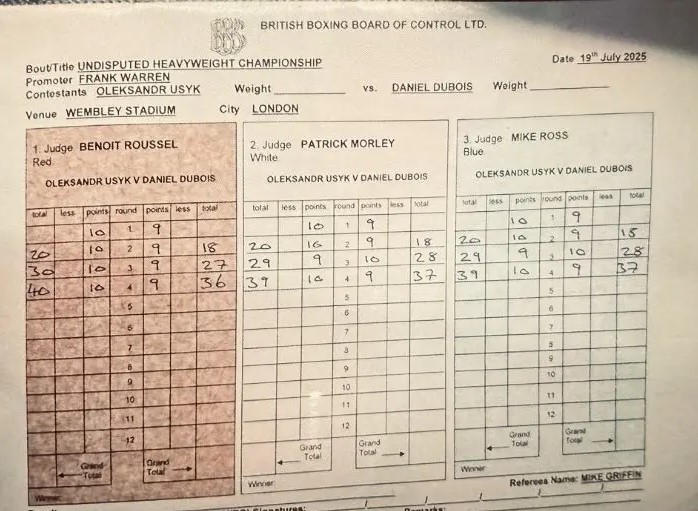 BRITISH BOXING BOARD OF CONTROL LTD.
Bout/Title UNDISPUTED HEAVYWEIGHT CHAMPIONSHIP Date 19th July 2025
Promoter FRANK WARREN
Contestants OLEKSANDR USYK Weight vs. DANIEL DUBOIS Weight
Venue WEMBLEY STADIUM City LONDON
1. Judge BENOIT ROUSSEL
Red
OLEKSANDR USYK V DANIEL DUBOIS
total less points round points less total
10 1 9
20 10 2 9 18
30 10 3 9 27
40 10 4 9 36
5
6
7
8
9
10
11
12
Grand Total Grand Total
Winner
2. Judge PATRICK MORLEY
White
OLEKSANDR USYK V DANIEL DUBOIS
total less points round points less total
10 1 9
20 10 2 9 18
29 9 3 10 28
39 10 4 9 37
5
6
7
8
9
10
11
12
Grand Total Grand Total
Winner
3. Judge MIKE ROSS
Blue
OLEKSANDR USYK V DANIEL DUBOIS
total less points round points less total
10 1 9
20 10 2 9 18
29 9 3 10 28
39 10 4 9 37
5
6
7
8
9
10
11
12
Grand Total Grand Total
Winner
Referees Name: MIKE GRIFFIN
Signatures: